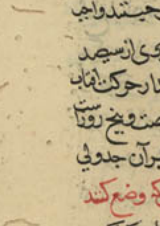 جستندواجب
ی از سیصد
ار حرکت آفتاب
ست و پنج روز است
بر آن جدولی
که وضع کنند